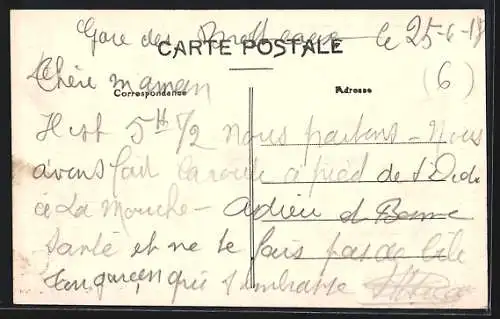 Gare des le 25-6-18
CARTE POSTALE
Chère maman (6)
Correspondance Adresse
Il est 5H 1/2 nous partons - Nous
avons fait la route à pied de
à La Mouche - adieu et Bonne
santé et ne te fais pas de bile
Ton garçon qui t'embrasse